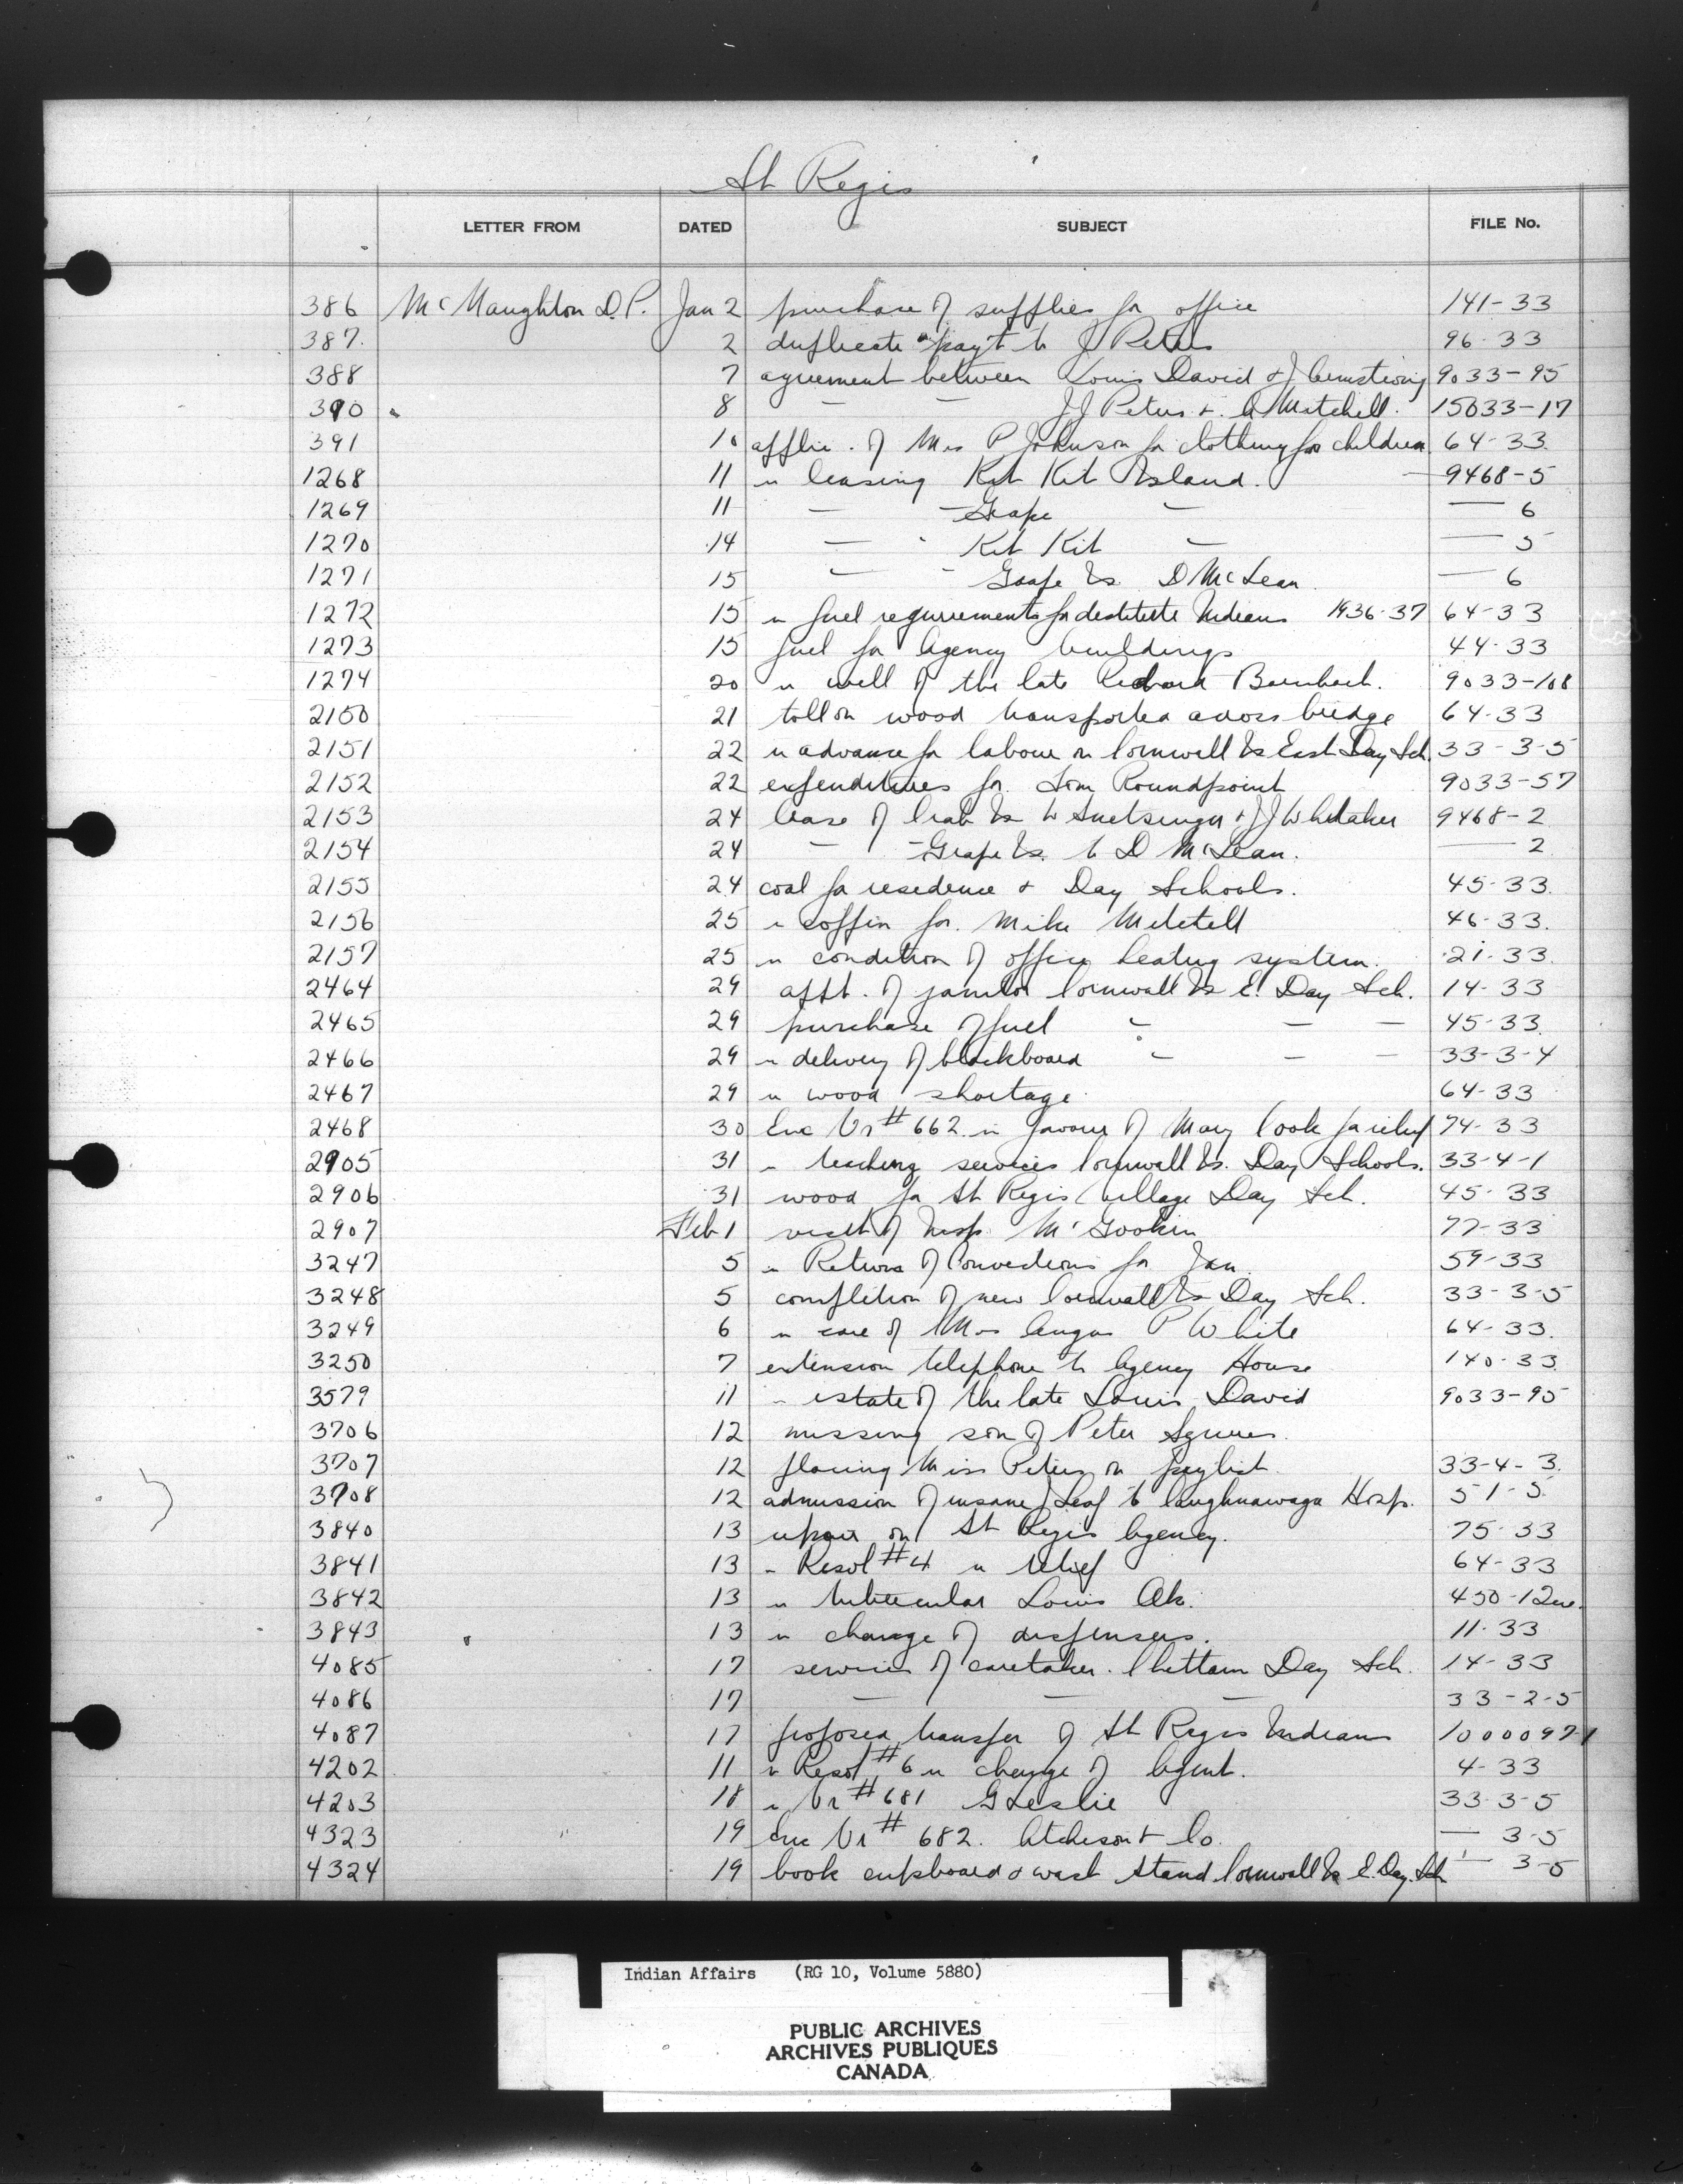 St Regis
LETTER FROM DATED SUBJECT FILE No.
386 McNaughton D.P. Jan 2 purchase of supplies for office 141-33
387. 2 duplicate payt to J Peters 96-33
388 7 agreement between Louis David & J Armstrong 9033-95
390 8 — — J J Peters & A Mitchell. 15033-17
391 10 applic. of Mrs P Johnson for clothing for children 64-33.
1268 11 re leasing Kit Kit Island. — 9468-5
1269 11 — — Grape — — 6
1270 14 — Kit Kit — — 5
1271 15 — - Grape Is. D McLean — 6
1272 15 re fuel requirements for destitute Indians 1936-37 64-33
1273 15 fuel for Agency buildings 44-33
1274 20 re will of the late Richard 9033-108
2150 21 toll on wood transported across bridge 64-33
2151 22 re advance for labour on Cornwall Is East Day Sch. 33-3-5
2152 22 expenditures for Tom Roundpoint 9033-57
2153 24 lease of Crab Is to Snetsinger & J J Whitaker 9468-2
2154 24 — — Grape Is. to D McLean. — 2
2155 24 coal for residence & Day Schools. 45-33.
2156 25 re coffin for Mike Mitchell 46-33.
2157 25 re condition of office heating system. 21-33.
2464 29 appt. of janitor Cornwall Is E. Day Sch. 14-33
2465 29 purchase of fuel — — — 45-33.
2466 29 re delivery of blackboard — — — 33-3-4
2467 29 re wood shortage 64-33
2468 30 Enc Vr # 662 in favour of Mary Cook for relief 74-33
2905 31 re teaching services Cornwall Is. Day Schools. 33-4-1
2906 31 wood for St Regis Village Day Sch. 45-33
2907 Feb 1 visit of Insp. McGookin 77-33
3247 5 re Return of Convictions for Jan. 59-33
3248 5 completion of new Cornwall Is Day Sch. 33-3-5
3249 6 re care of Mrs Angus P White 64-33.
3250 7 extension telephone to Agency House 140-33
3579 11 re estate of the late Louis David 9033-95
3706 12 missing son of Peter Squires.
3707 12 placing Miss Peters on paylist 33-4-3.
3708 12 admission of insane J Leaf to Caughnawaga Hosp. 51-5.
3840 13 on St Regis Agency. 75-33
3841 13 re Resol #4 re relief 64-33
3842 13 re tubercular Louis Ak. 450-12
3843 13 re change of dispensers. 11-33
4085 17 services of caretaker. Chettam Day Sch. 14-33
4086 17 — — — 33-2-5
4087 17 proposed transfer of St Regis Indians 1000097-1
4202 11 re Resol #6 re change of Agent. 4-33
4203 18 re Vr # 681 G Leslie 33-3-5
4323 19 enc Vr # 682. Atcheson & Co. — 3-5
4324 19 book cupboard & wash stand Cornwall Is E. Day. Sch — 3-5
Indian Affairs (RG 10, Volume 5880)
PUBLIC ARCHIVES
ARCHIVES PUBLIQUES
CANADA